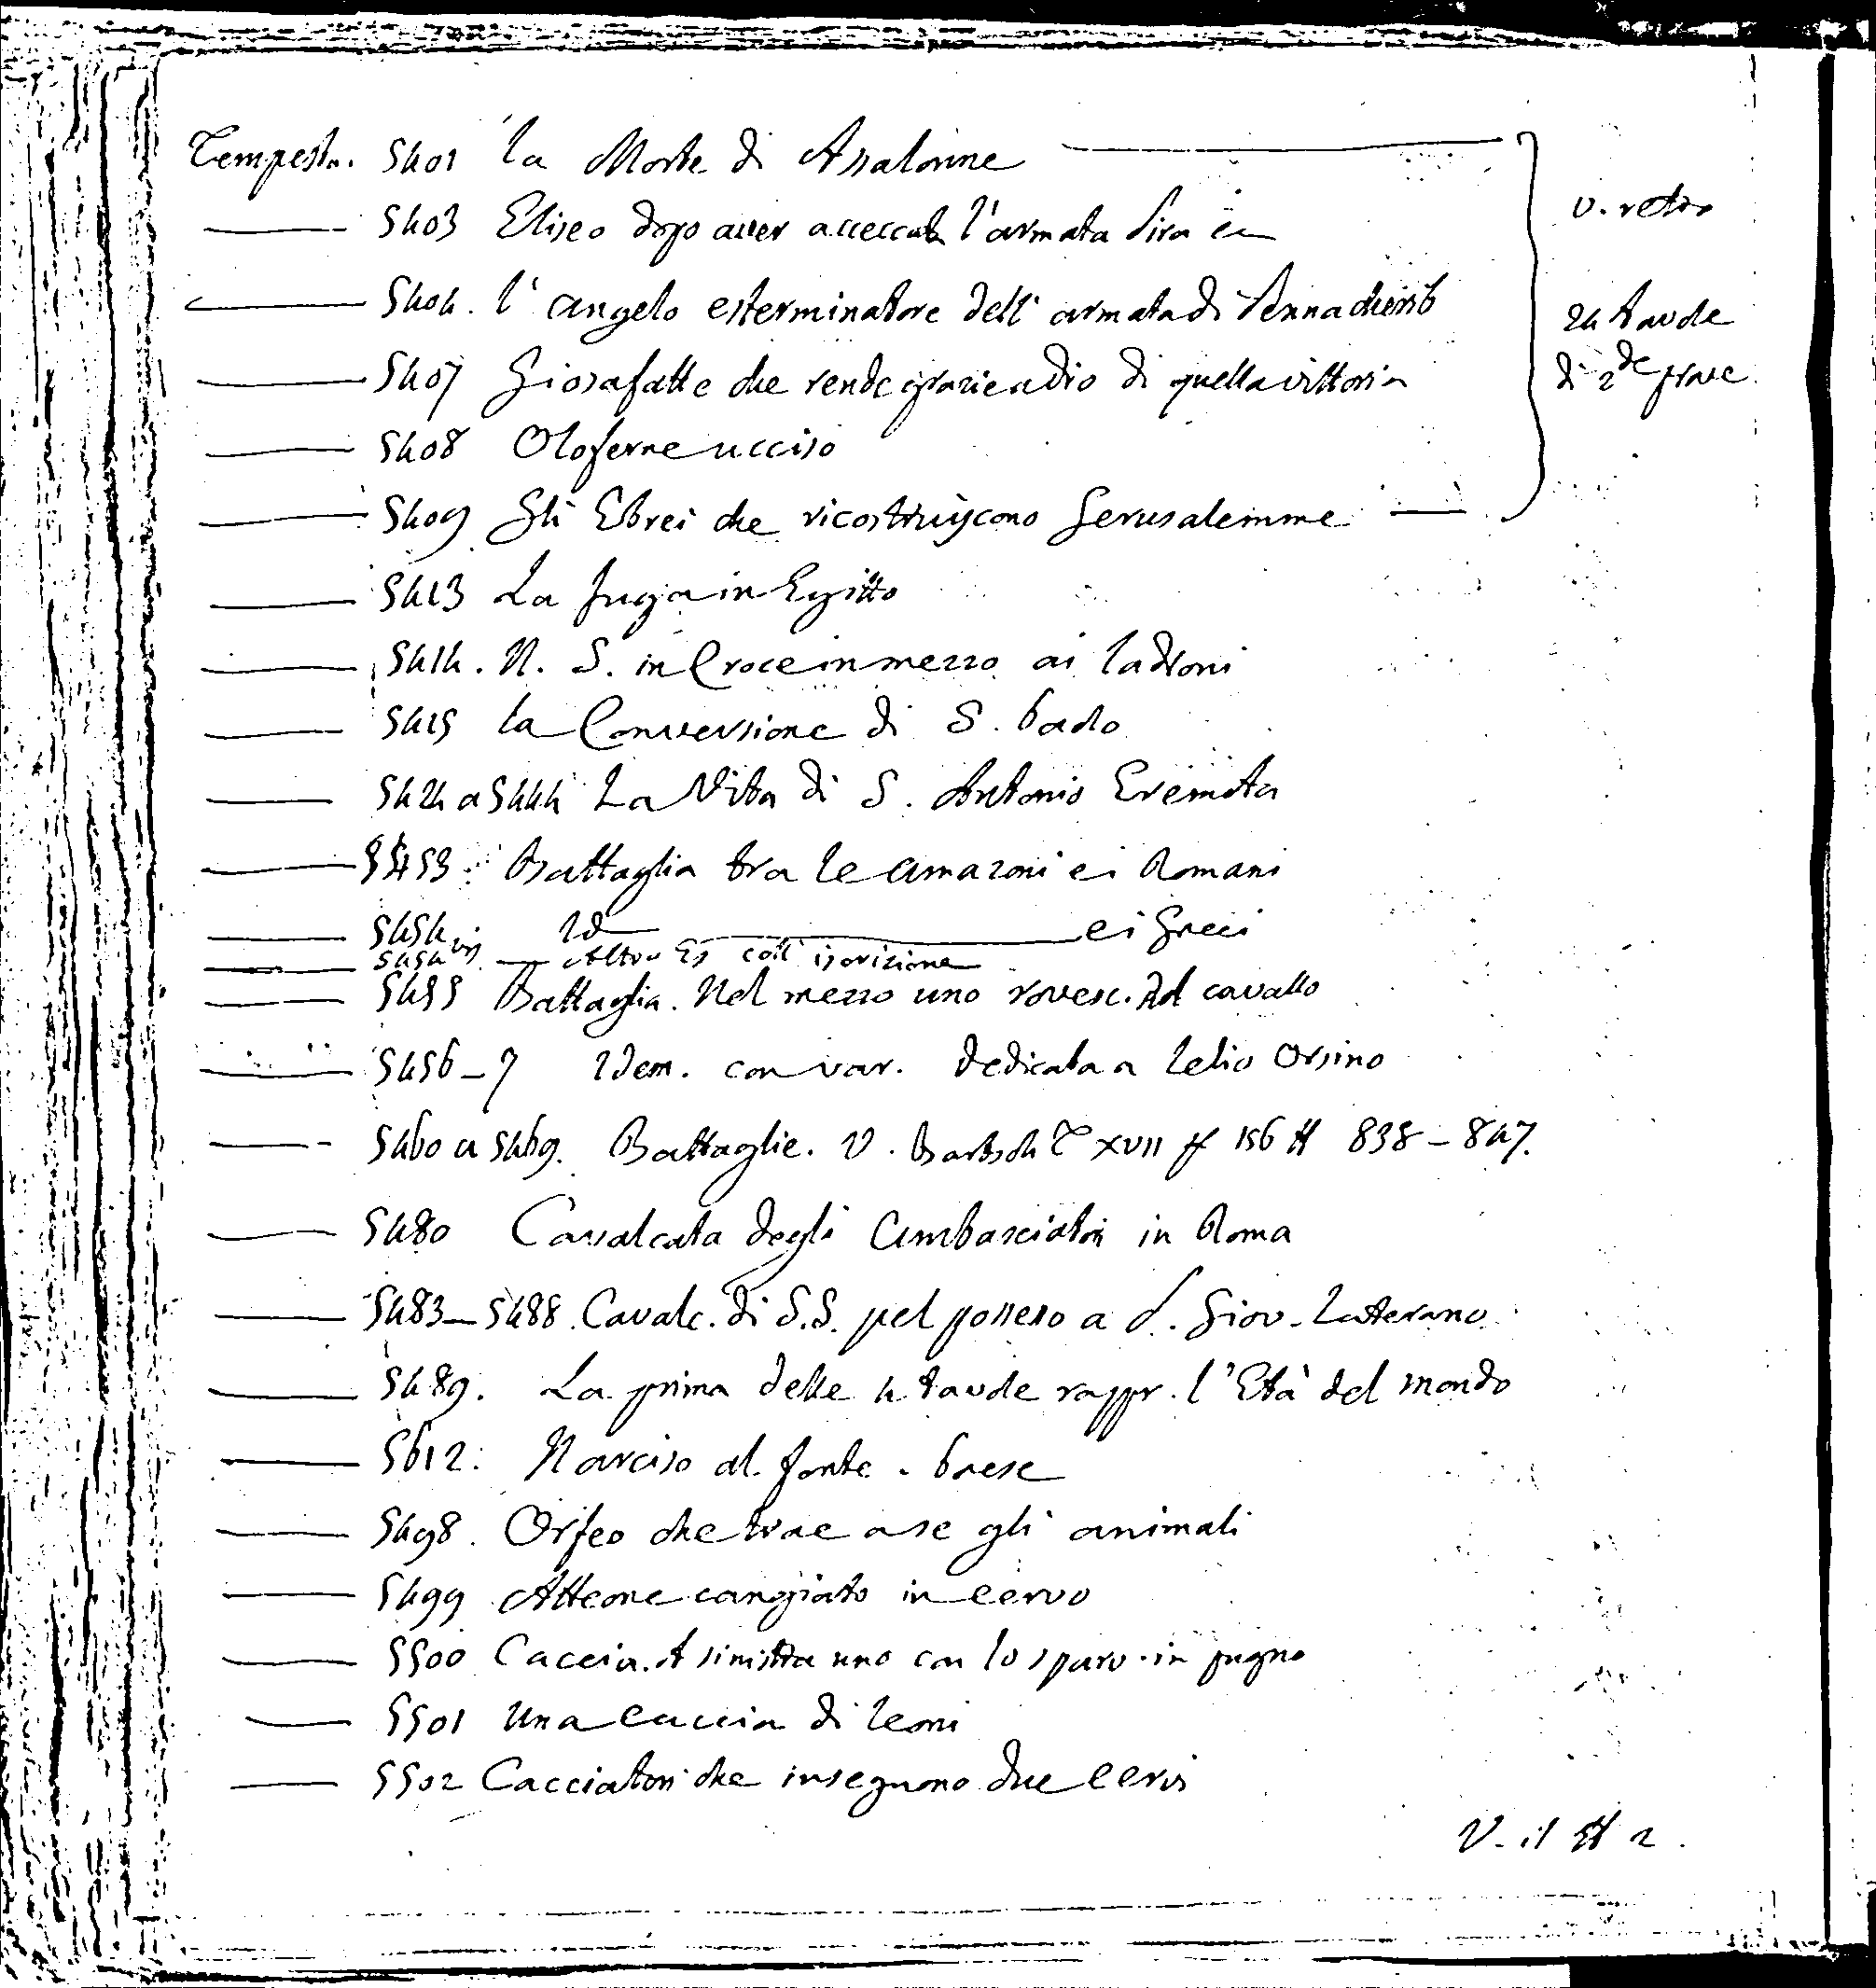 Tempesta. 5401 la Morte di Assalonne
5403 Eliseo dopo aver acceccata l'armata Sira
v. retro
5404. l'angelo esterminatore dell'armata di Sennacherib
24 tavole
5407 Giosafatte che rende grazie a dio di quella vittoria
di 2de prove
5408 Oloferne ucciso
5409 Gli Ebrei che ricostruiscono Gerusalemme
5413 La fuga in Egitto
5414. N. S. in Croce in mezzo ai ladroni
5415 la Conversione di S. Paolo
5424 a 5444 La Vita di S. Antonio Eremita
5453. Battaglia tra le amazoni e i Romani
5454 Id e i Greci
5454 bis Altro Es coll'iscrizione
5455 Battaglia. Nel mezzo uno rovesc. dal cavallo
5456-7 Idem. con var. dedicata a Lelio Orsino
5460 a 5469. Battaglie. V. Bartsch T XVII p 156 # 838-847.
5480 Cavalcata degli Ambasciatori in Roma
5483-5488. Cavalc. di S.S. pel possesso a S. Giov. Laterano
5489. La prima delle 4 tavole rappr. l'Età del mondo
5612. Narciso al fonte. Paese
5498. Orfeo che trae a se gli animali
5499 Atteone cangiato in cervo
5500 Caccia. A sinistra uno con lo sparv. in pugno
5501 Una caccia di leoni
5502 Cacciatori che inseguono due cervi
V. il # 2.